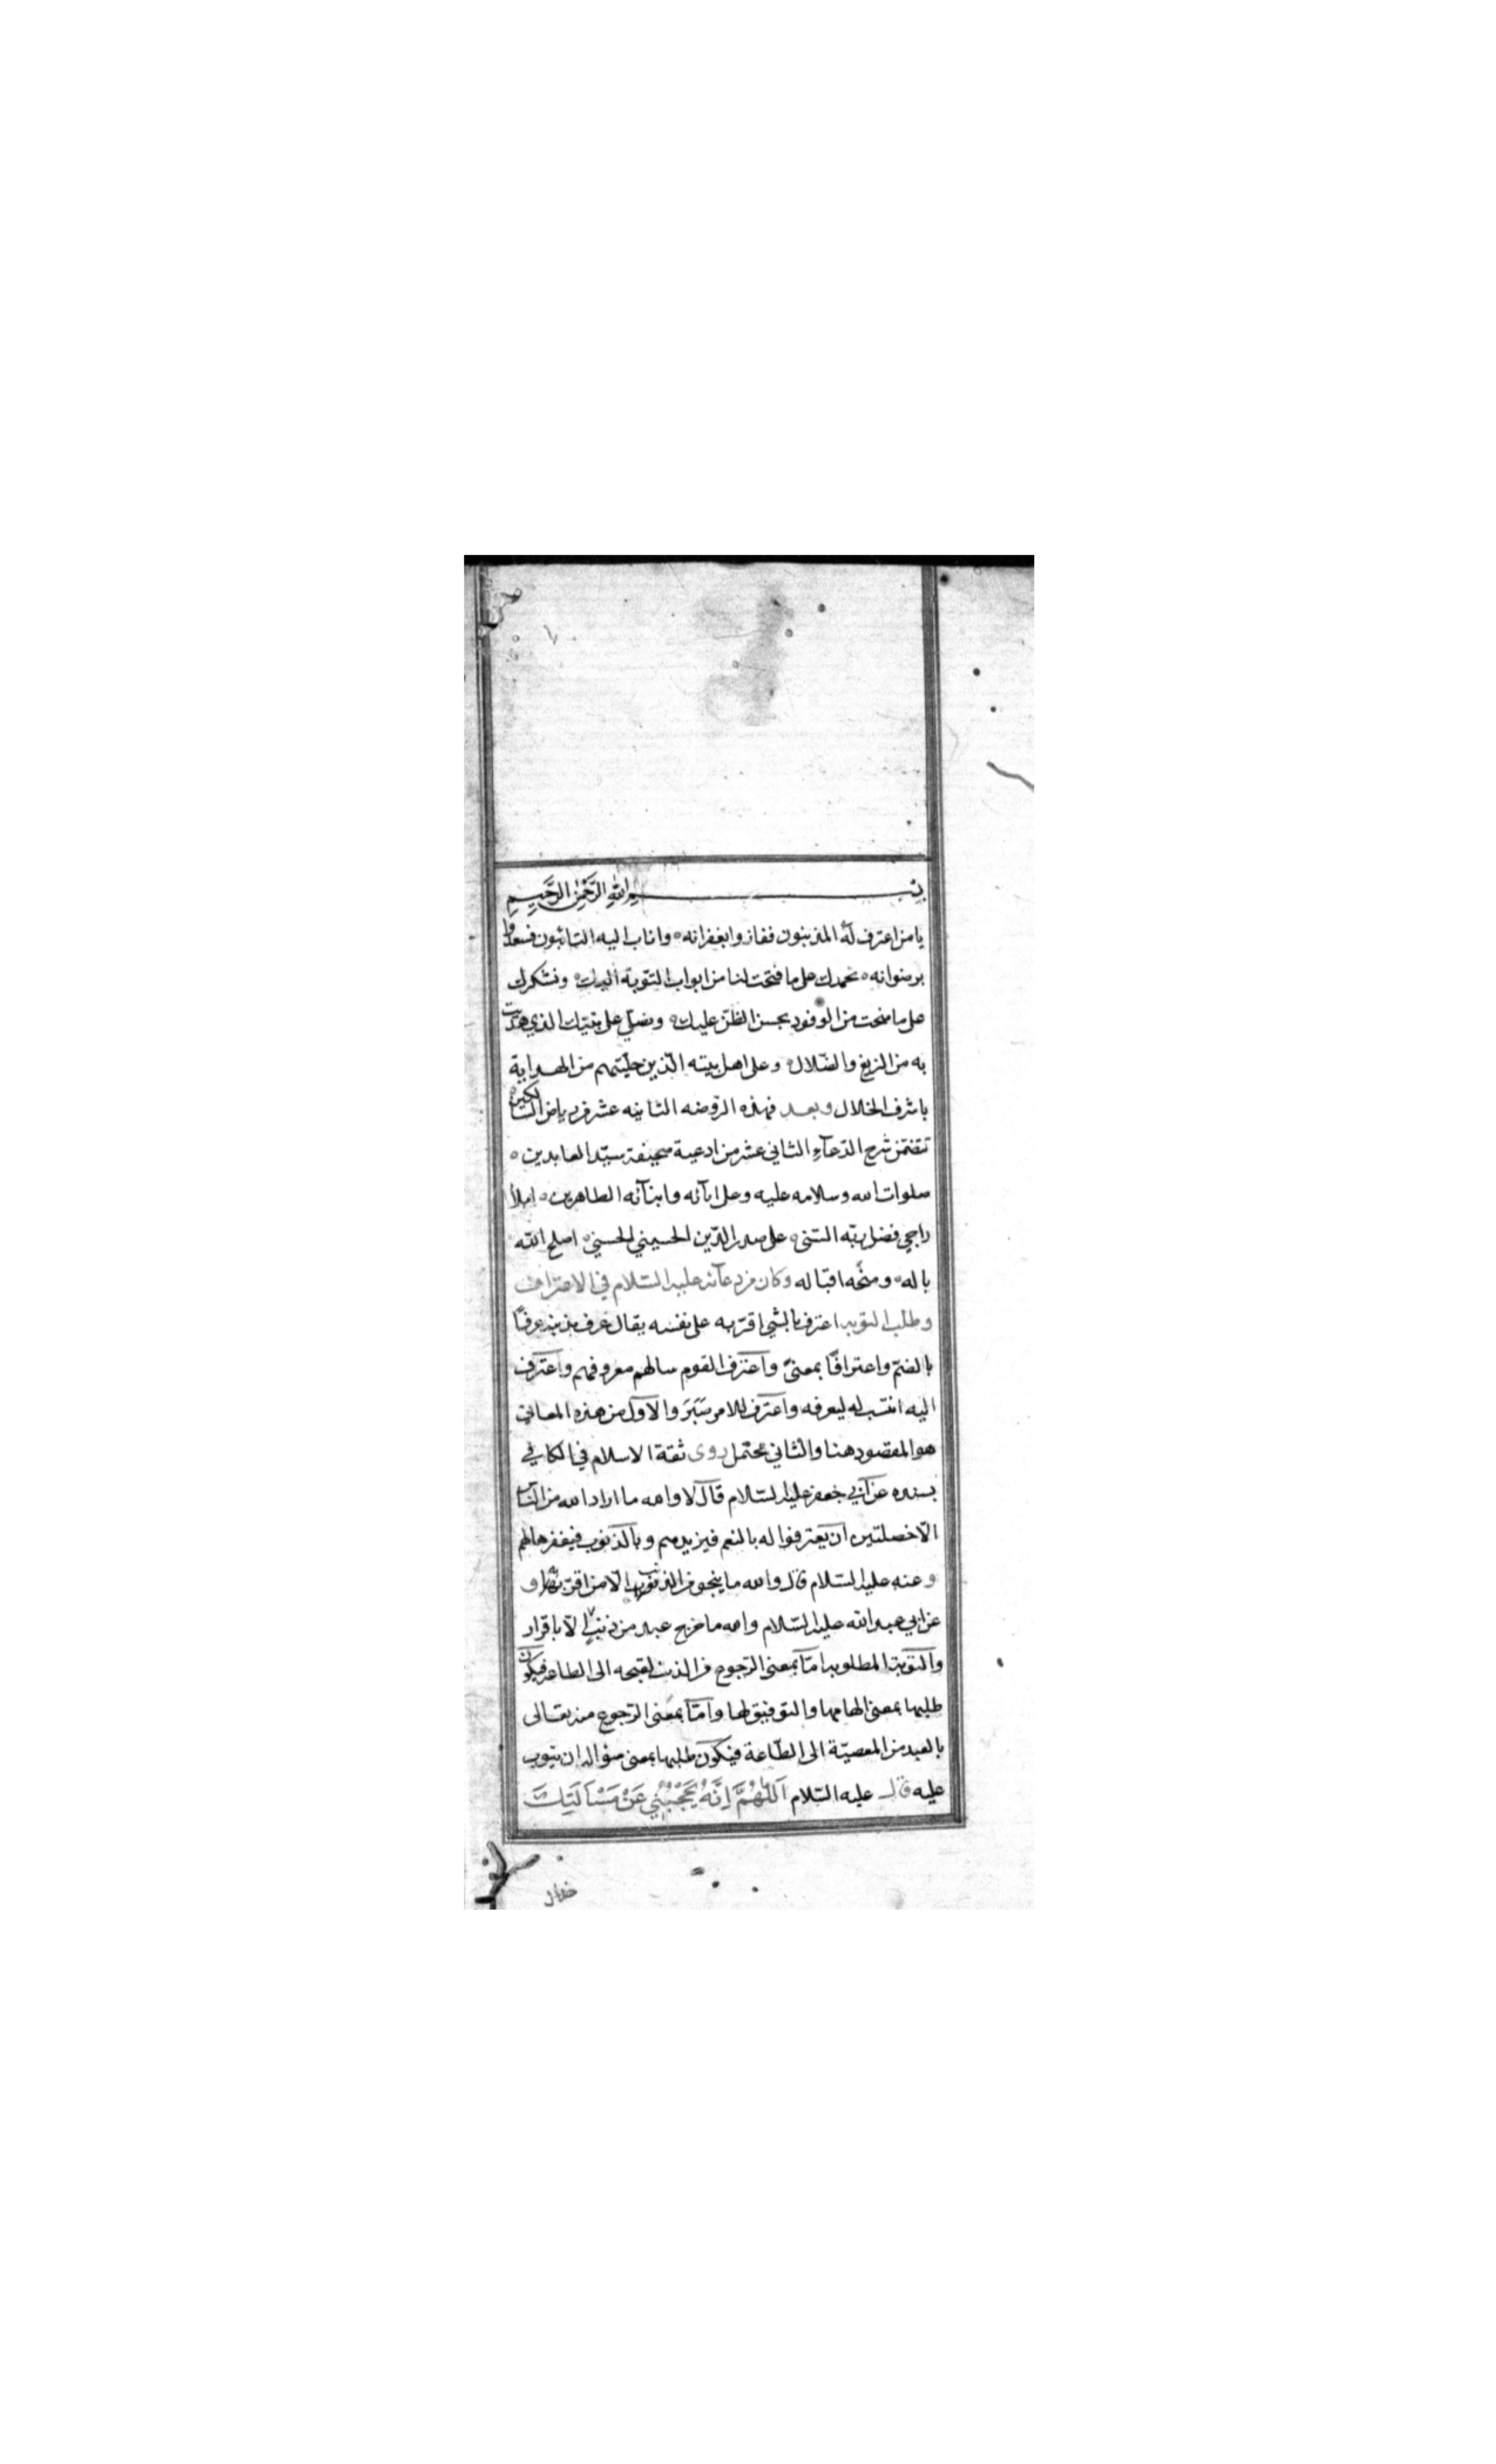 بسم الله الرحمن الرحيم
يا من اعترف له المذنبون ففازوا بغفرانه ه واناب اليه التائبون فسعدوا
برضوانه ه نحمدك على ما فتحت لنا من ابواب التوبة اليك ه ونشكرك
على ما منحت من الوفود بحسن الظنّ عليك ه ونصلّي على نبيّك الذي هديت
به من الزيغ والضّلال ه وعلى اهل بيته الّذين حلّيتهم من الهداية
باشرف الخلال وبعد فهذه الرّوضه الثانيه عشر من رياض السّالكين ه
تتضمّن شرح الدّعآء الثاني عشر من ادعية صحيفة سيّد العابدين ه
صلوات الله وسلامه عليه وعلى ابآئه وابنآئه الطاهرين ه املأ
راجي فضل ربّه السّنى ه على صدر الدّين الحسيني الحسنى ه اصلح الله
باله ه ومنحه اقباله وكان من دعآئه عليه السّلام في الاعتراف
وطلب التوبه اعترف بالشي اقرّ به على نفسه يقال عرف بذنبه عرفًا
بالضمّ واعترافًا بمعنىً واعترف القوم سالهم معروفهم واعترف
اليه انتسب له ليعرفه واعترف للامر صَبَرَ والاوّل من هذه المعاني
هو المقصود هنا والثاني محتمل روى ثقة الاسلام في الكافي
بسنده عن ابي جعفر عليه السّلام قال لا والله ما اراد الله من النّاس
الّا خصلتين ان يعترفوا له بالنعم فيزيدهم وبالذنوب فيغفرها لهم
وعنه عليه السّلام قال والله ما ينجو من الذنوب الّا من اقرّ بها و
عن ابي عبد الله عليه السّلام والله ما خرج عبد من ذنب الّا باقرار
والتوبة المطلوبه امّا بمعنى الرّجوع من الذنب لقبحه الى الطاعه فيكون
طلبها بمعنى الهامها والتوفيق لها وامّا بمعنى الرّجوع منه تعالى
بالعبد من المعصيّة الى الطّاعة فيكون طلبها بمعنى سؤاله ان يتوب
عليه قال عليه السّلام اَللّٰهُمَّ اِنَّهُ يَحْجُبُنِي عَنْ مَسْأَلَتِكَ
خلال